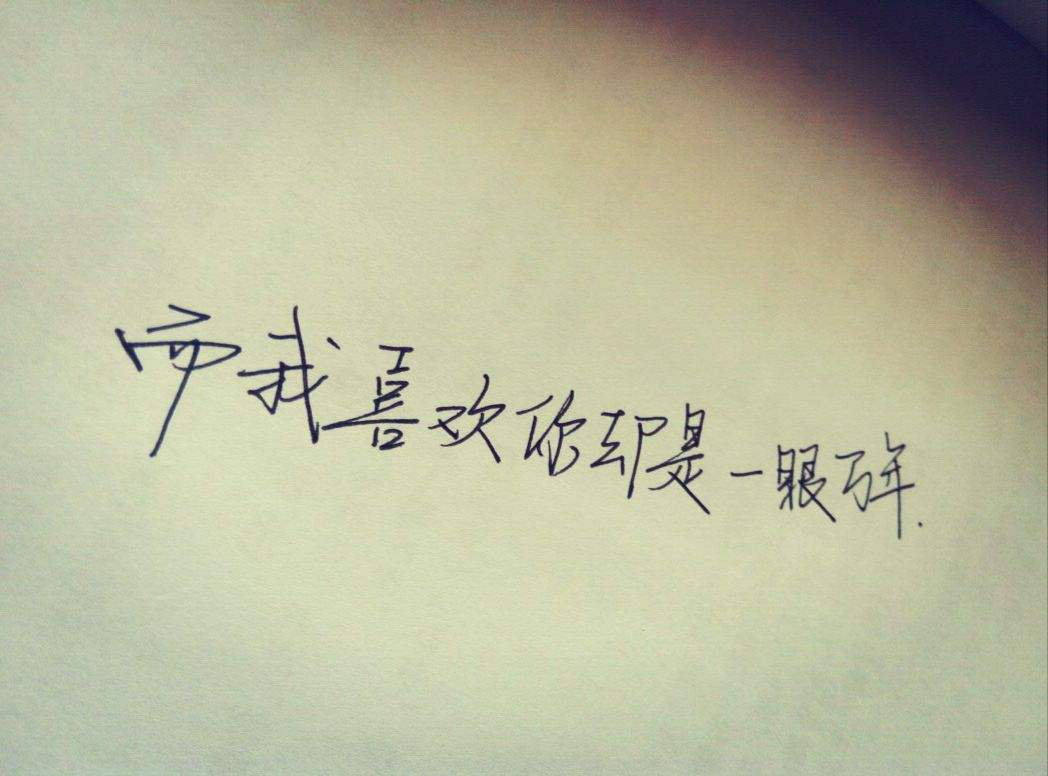 而我喜欢你却是一眼万年.